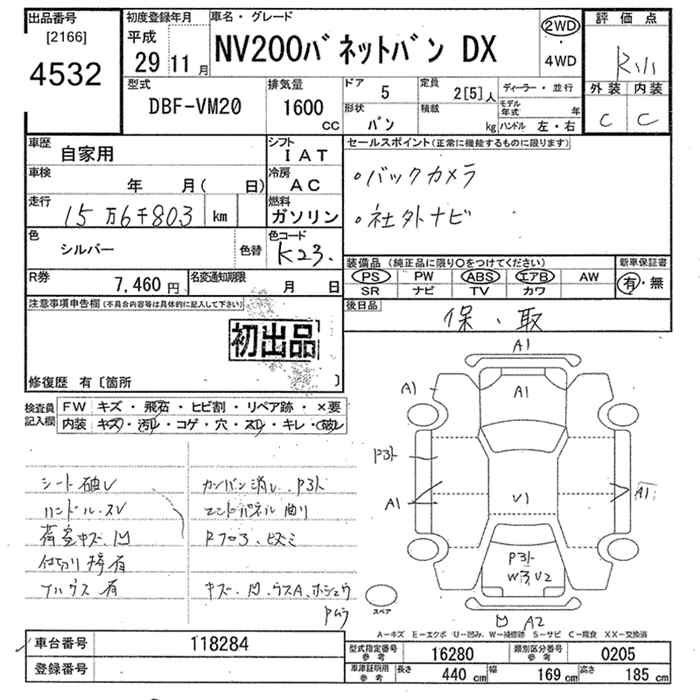 出品番号 初度登録年月 車名・グレード 評価点
[2166] 平成 2WD
4532 29 11月 NV200バネットバン DX ・ 4WD
型式 排気量 ドア 5 定員 2[5]人 ディーラー・並行 外装 内装
DBF-VM20 1600 cc 形状 バン 積載 kg モデル年式 年 C C
ハンドル 左・右
車歴 自家用 シフト IAT セールスポイント(正常に機能するものに限ります)
車検 年 月( 日) 冷房 AC ・バックカメラ
走行 15万6千803 km 燃料 ガソリン ・社外ナビ
色 シルバー 色替 色コード K23. 装備品(純正品に限り○をつけてください) 新車保証書
R券 7,460円 名変通知期限 月 日 PS PW ABS エアB AW 有・無
SR ナビ TV カワ
注意事項申告欄(不具合内容等は具体的に記入して下さい) 後日品 保・取
初出品
修復歴 有〔箇所 〕
検査員記入欄 FW キズ・飛石・ヒビ割・リペア跡・×要
内装 キズ・汚れ・コゲ・穴・スレ・キレ・破レ
シート破レ カンバン消し、P3ト
ハンドル、スレ エンドパネル曲り
荷室キズ、凹
仕切り棒有
有 キズ、凹、
A1
A1 A1
P3ト
A1 V1 A1
P3ト
V2
スペア
A2
A-キズ E-エクボ U-凹み W-補修跡 S-サビ C-腐食 XX-交換済
車台番号 118284 型式指定番号参考 16280 類別区分番号参考 0205
登録番号 車庫証明用参考 長さ 440 cm 幅 169 cm 高さ 185 cm